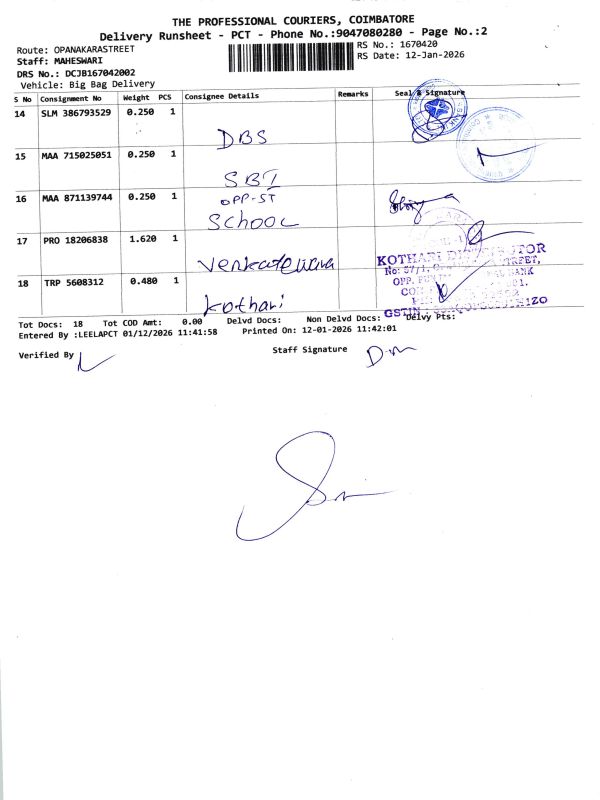 THE PROFESSIONAL COURIERS, COIMBATORE
Delivery Runsheet - PCT - Phone No.:9047080280 - Page No.:2
Route: OPANAKARASTREET
RS No.: 1670420
Staff: MAHESWARI
RS Date: 12-Jan-2026
DRS No.: DCJB167042002
Vehicle: Big Bag Delivery
S No Consignment No Weight PCS Consignee Details Remarks Seal & Signature
14 SLM 386793529 0.250 1
DBS
15 MAA 715025051 0.250 1
SBI
16 MAA 871139744 0.250 1
OPP-ST
SCHOOL
17 PRO 18206838 1.620 1
Venkateswara
KOTHARI
STREET,
18 TRP 5608312 0.480 1
OPP.
BANK
Kothari
GSTIN
Tot Docs: 18 Tot COD Amt: 0.00 Delvd Docs: Non Delvd Docs: Delvy Pts:
Entered By :LEELAPCT 01/12/2026 11:41:58 Printed On: 12-01-2026 11:42:01
Verified By
Staff Signature